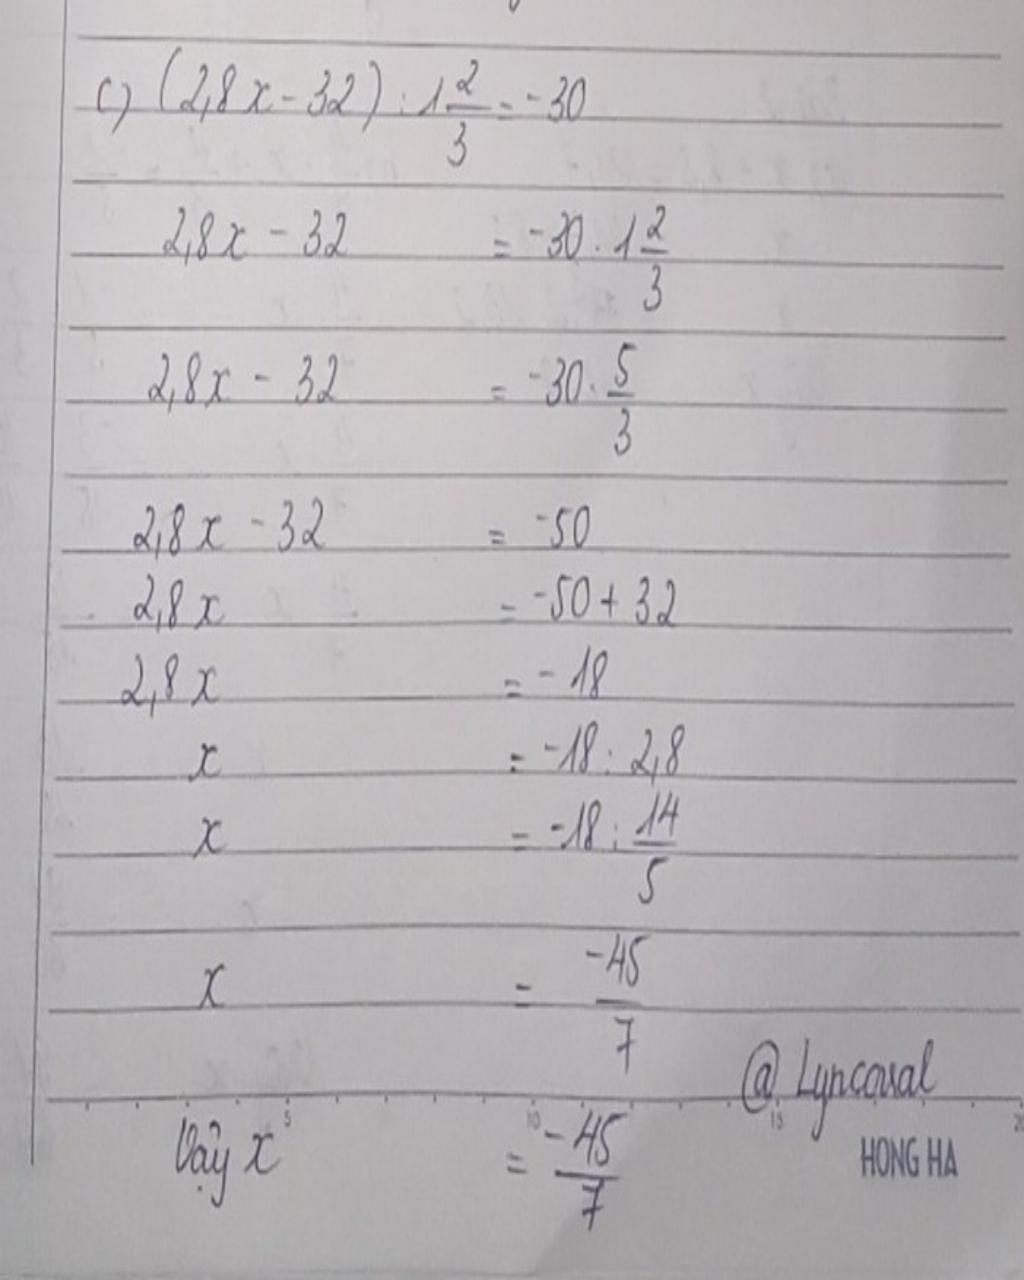 c) (2,8x - 32) : 1 2/3 = -30
2,8x - 32 = -30 . 1 2/3
2,8x - 32 = -30 . 5/3
2,8x - 32 = -50
2,8x = -50 + 32
2,8x = -18
x = -18 : 2,8
x = -18 : 14/5
x = -45/7
@ Lyncoval
5 10 15 20
Vậy x = -45/7
HONG HA